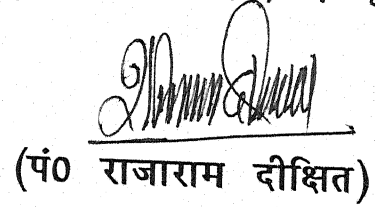 (पं0 राजाराम दीक्षित)